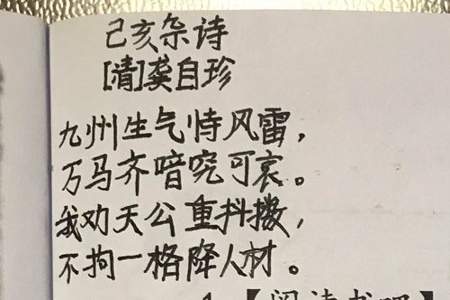 己亥杂诗
[清]龚自珍
九州生气恃风雷，
万马齐喑究可哀。
我劝天公重抖擞，
不拘一格降人材。